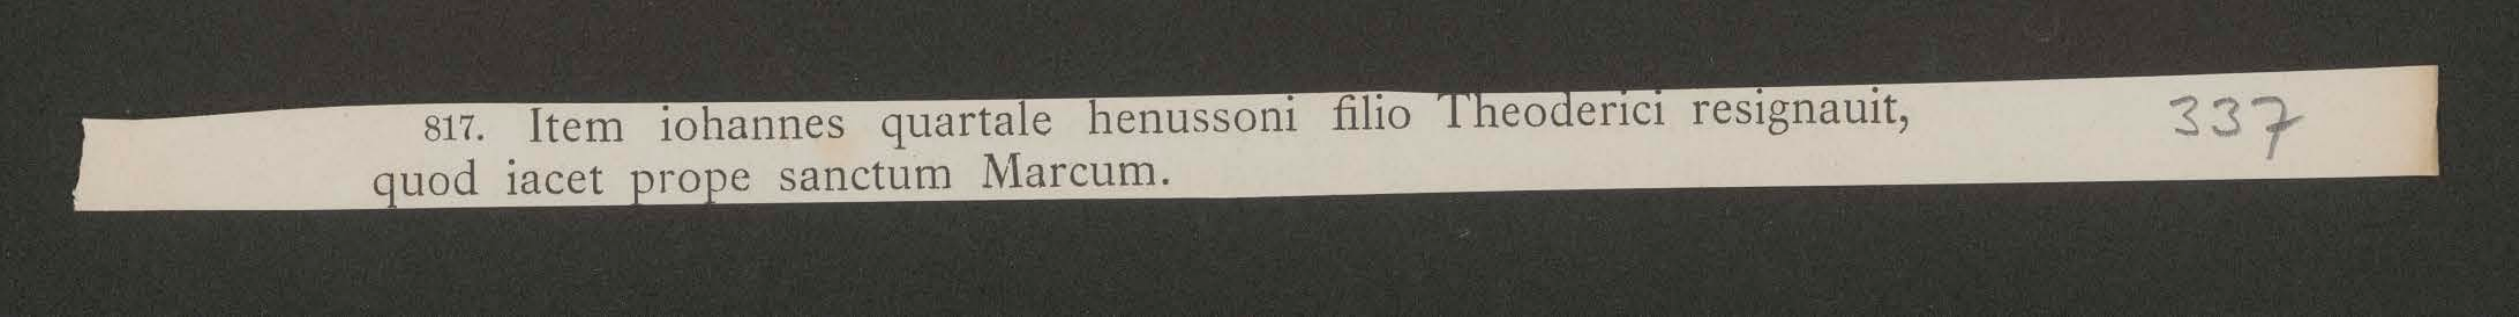 817. Item iohannes quartale henussoni filio Theoderici resignauit,
quod iacet prope sanctum Marcum.
337